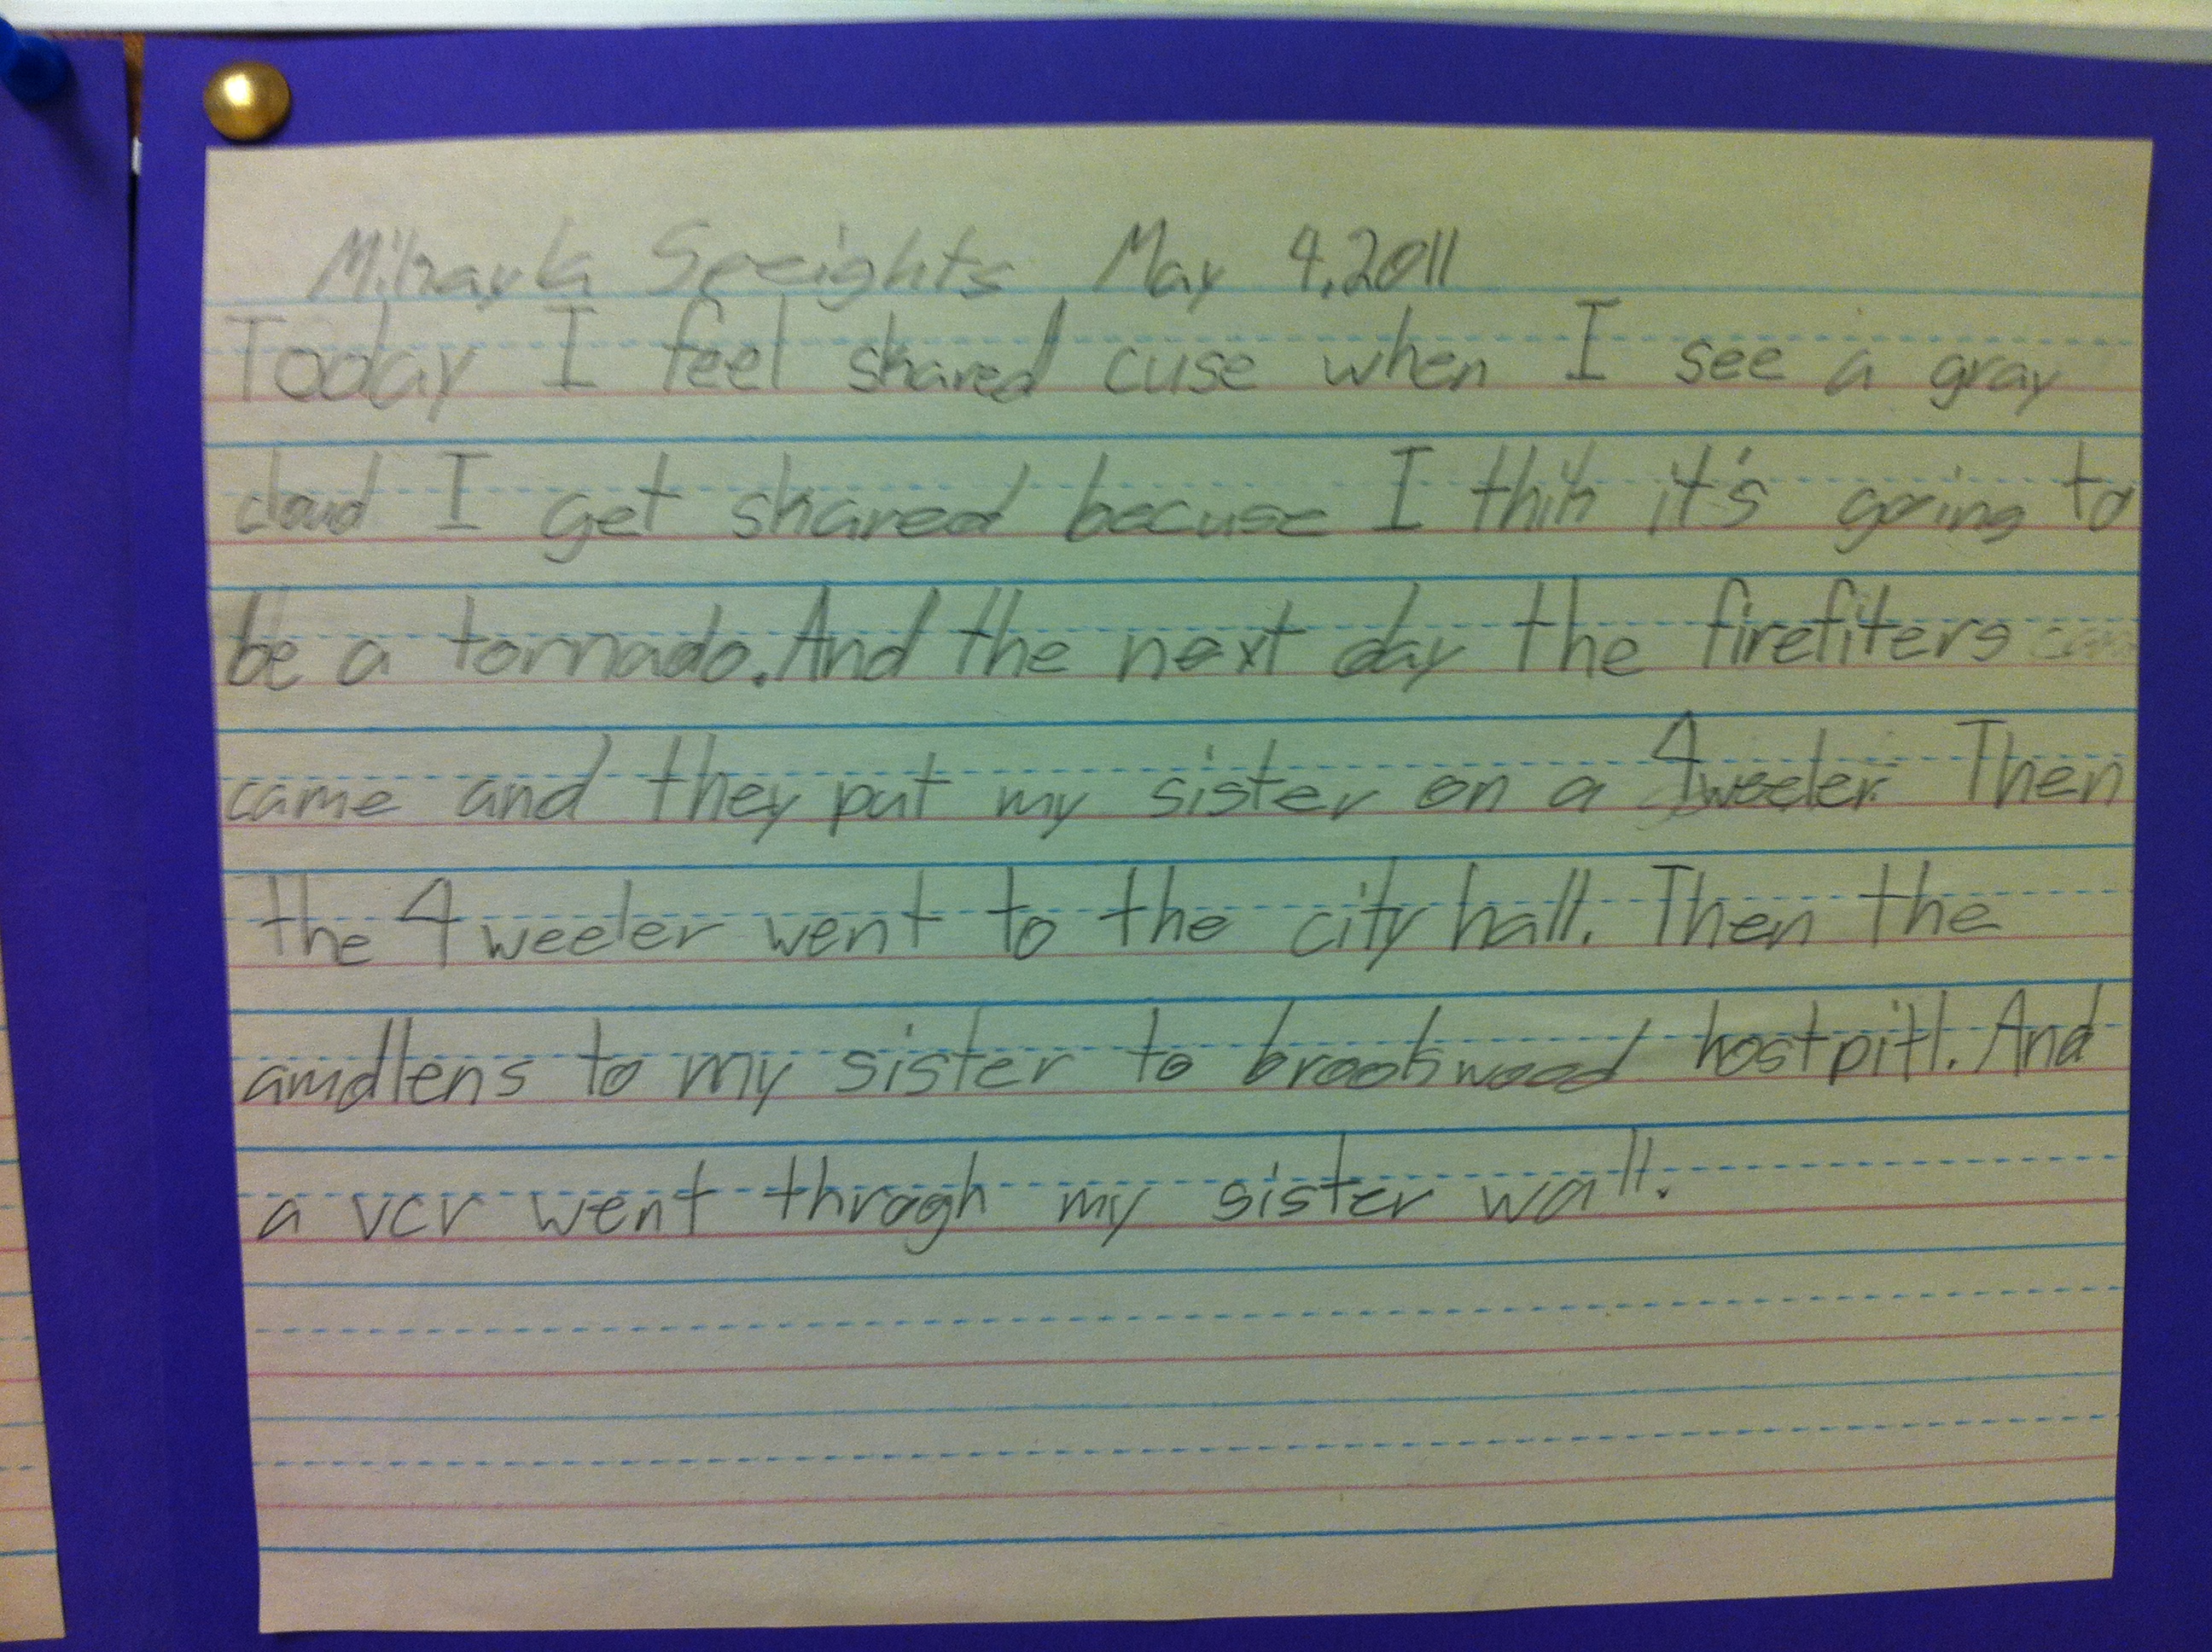 Mikayla Speights May 4, 2011
Today I feel skared cuse when I see a gray
cloud I get skared becuse I thik it's going to
be a tornado. And the next day the firefiters
came and they put my sister on a 4 weeler. Then
the 4 weeler went to the city hall. Then the
amdlens to my sister to brookwood hostpitl. And
a vcr went throgh my sister wall.